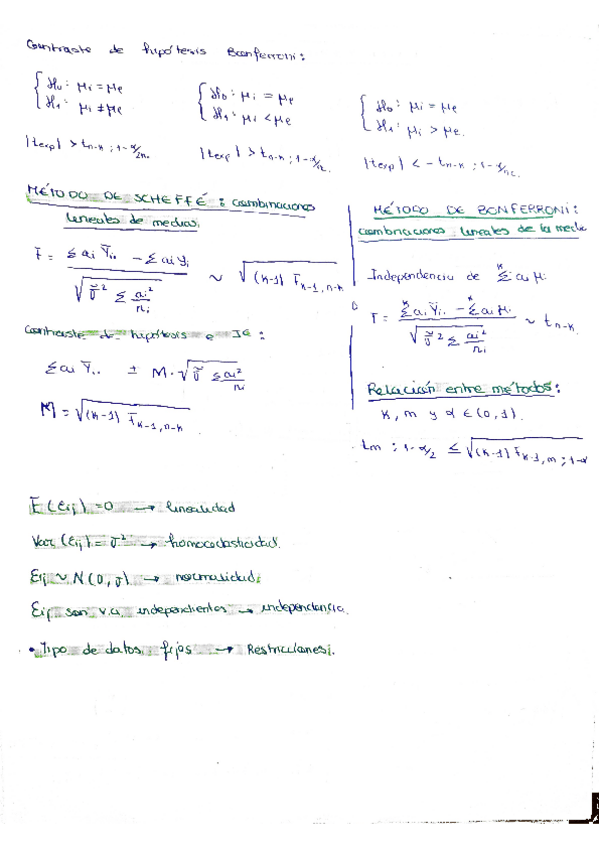 Contraste de hipótesis Bonferroni:
{ H₀: μi = μe
H₁: μi ≠ μe
|texp| > t n-k ; 1-α/2r.
{ H₀: μi = μe
H₁: μi < μe
|texp| > t n-k ; 1-α/r.
{ H₀: μi = μe
H₁: μi > μe.
|texp| < - t n-k ; 1-α/r.
MÉTODO DE SCHEFFÉ: combinaciones
lineales de medias.
F = (Σ ai Ȳi. - Σ ai yi) / √(σ̂² Σ ai²/ni) ~ √((k-1) F k-1, n-k)
Contraste de hipótesis e IC:
Σ ai Ȳi. ± M · √(σ̂ Σ ai²/ni)
M = √((k-1) F k-1, n-k)
MÉTODO DE BONFERRONI:
combinaciones lineales de la media
Independencia de Σᵏ ai μi
T = (Σᵏ ai Ȳi. - Σᵏ ai μi) / √(σ̂² Σ ai²/ni) ~ t n-k.
Relación entre métodos:
k, m y α ∈ (0,1).
tm ; 1-α/2 ≤ √((k-1) F k-1, m ; 1-α)
E(εij) = 0 → linealidad
Var(εij) = σ² → homocedasticidad.
εij ~ N(0,σ) → normalidad.
εij son v.a independientes → independencia.
• Tipo de datos fijos → Restricciones.